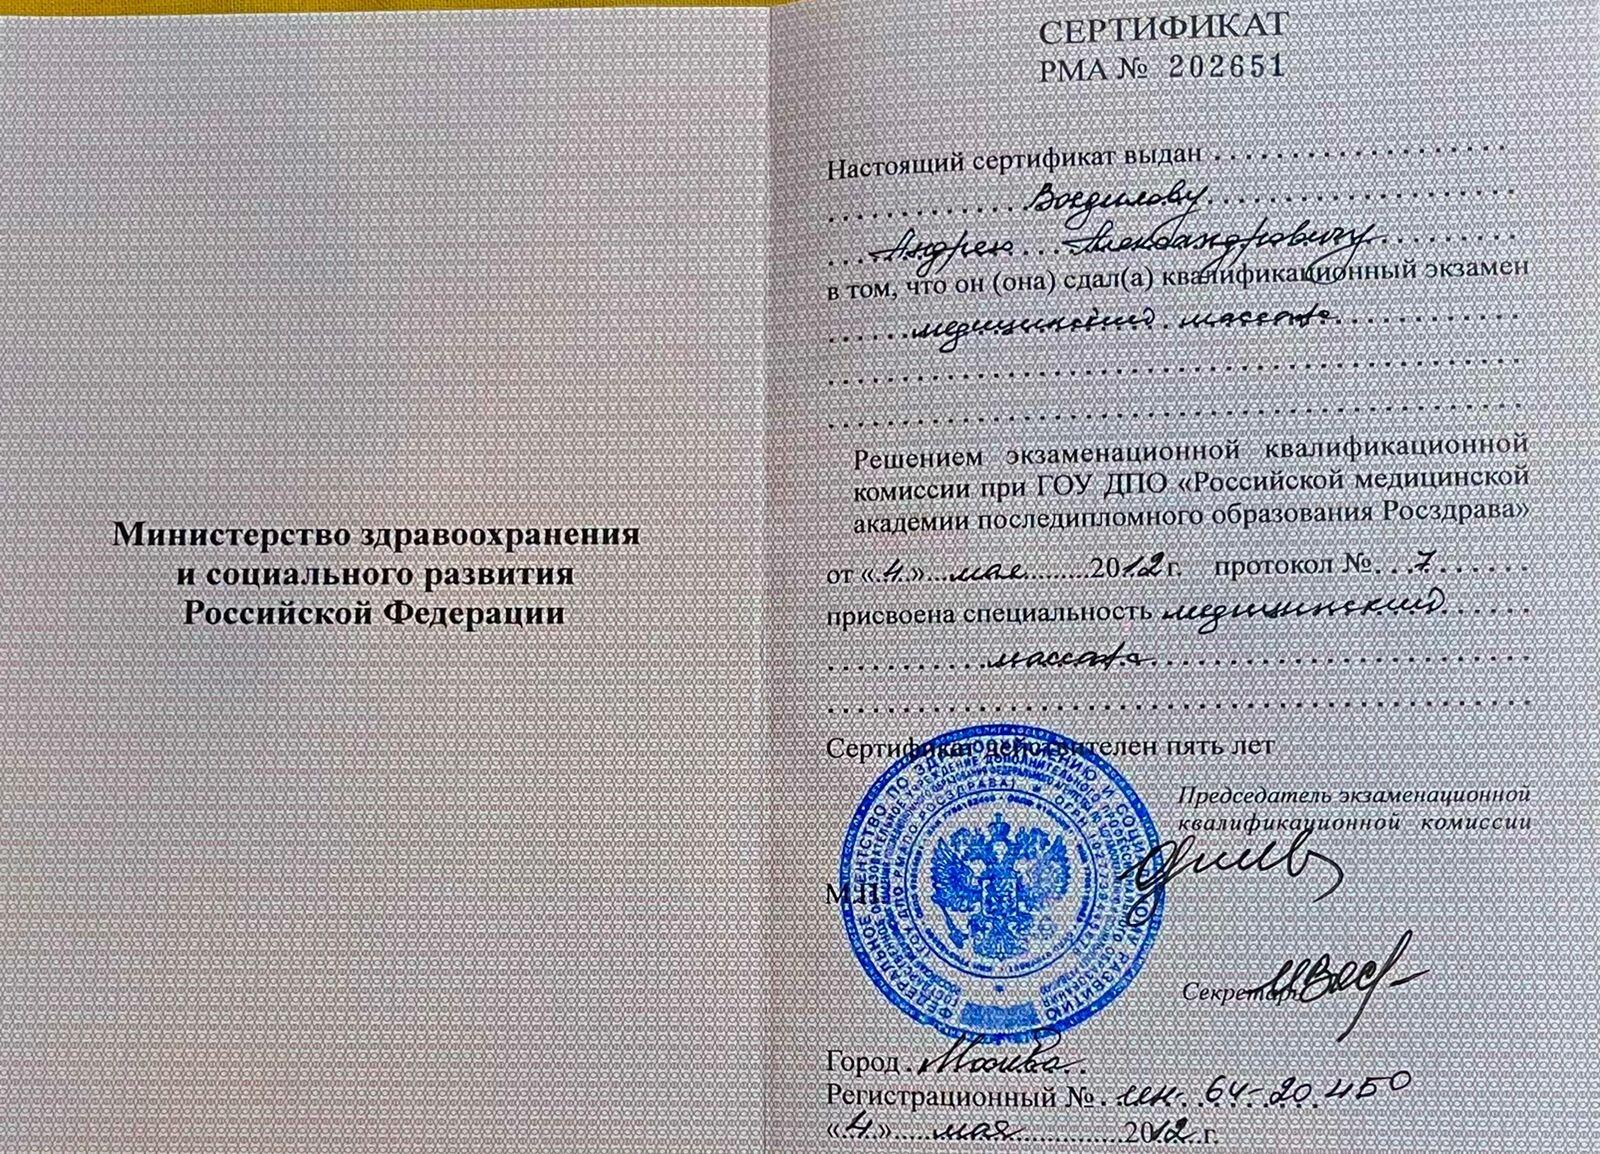 Министерство здравоохранения
и социального развития
Российской Федерации
СЕРТИФИКАТ
РМА № 202651
Настоящий сертификат выдан
Андрею Александровичу
в том, что он (она) сдал(а) квалификационный экзамен
медицинский массаж
Решением экзаменационной квалификационной
комиссии при ГОУ ДПО «Российской медицинской
академии последипломного образования Росздрава»
от «4» мая 2012 г. протокол № 7
присвоена специальность медицинский
массаж
Сертификат действителен пять лет
Председатель экзаменационной
квалификационной комиссии
М.П.
Секретарь
Город Москва
Регистрационный № ин. 64-20450
«4» мая 2012 г.
ФЕДЕРАЛЬНОЕ АГЕНТСТВО ПО ЗДРАВООХРАНЕНИЮ И СОЦИАЛЬНОМУ РАЗВИТИЮ